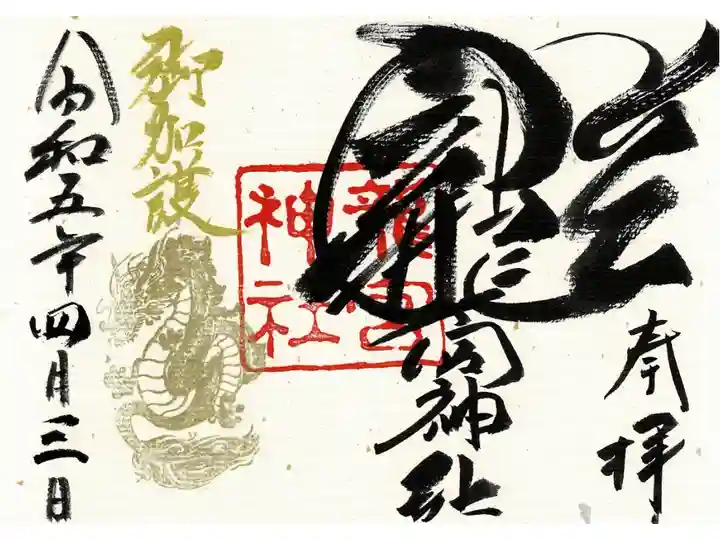 奉拝
龍宮神社
龍宮
神社
御加護
令和五年四月三日